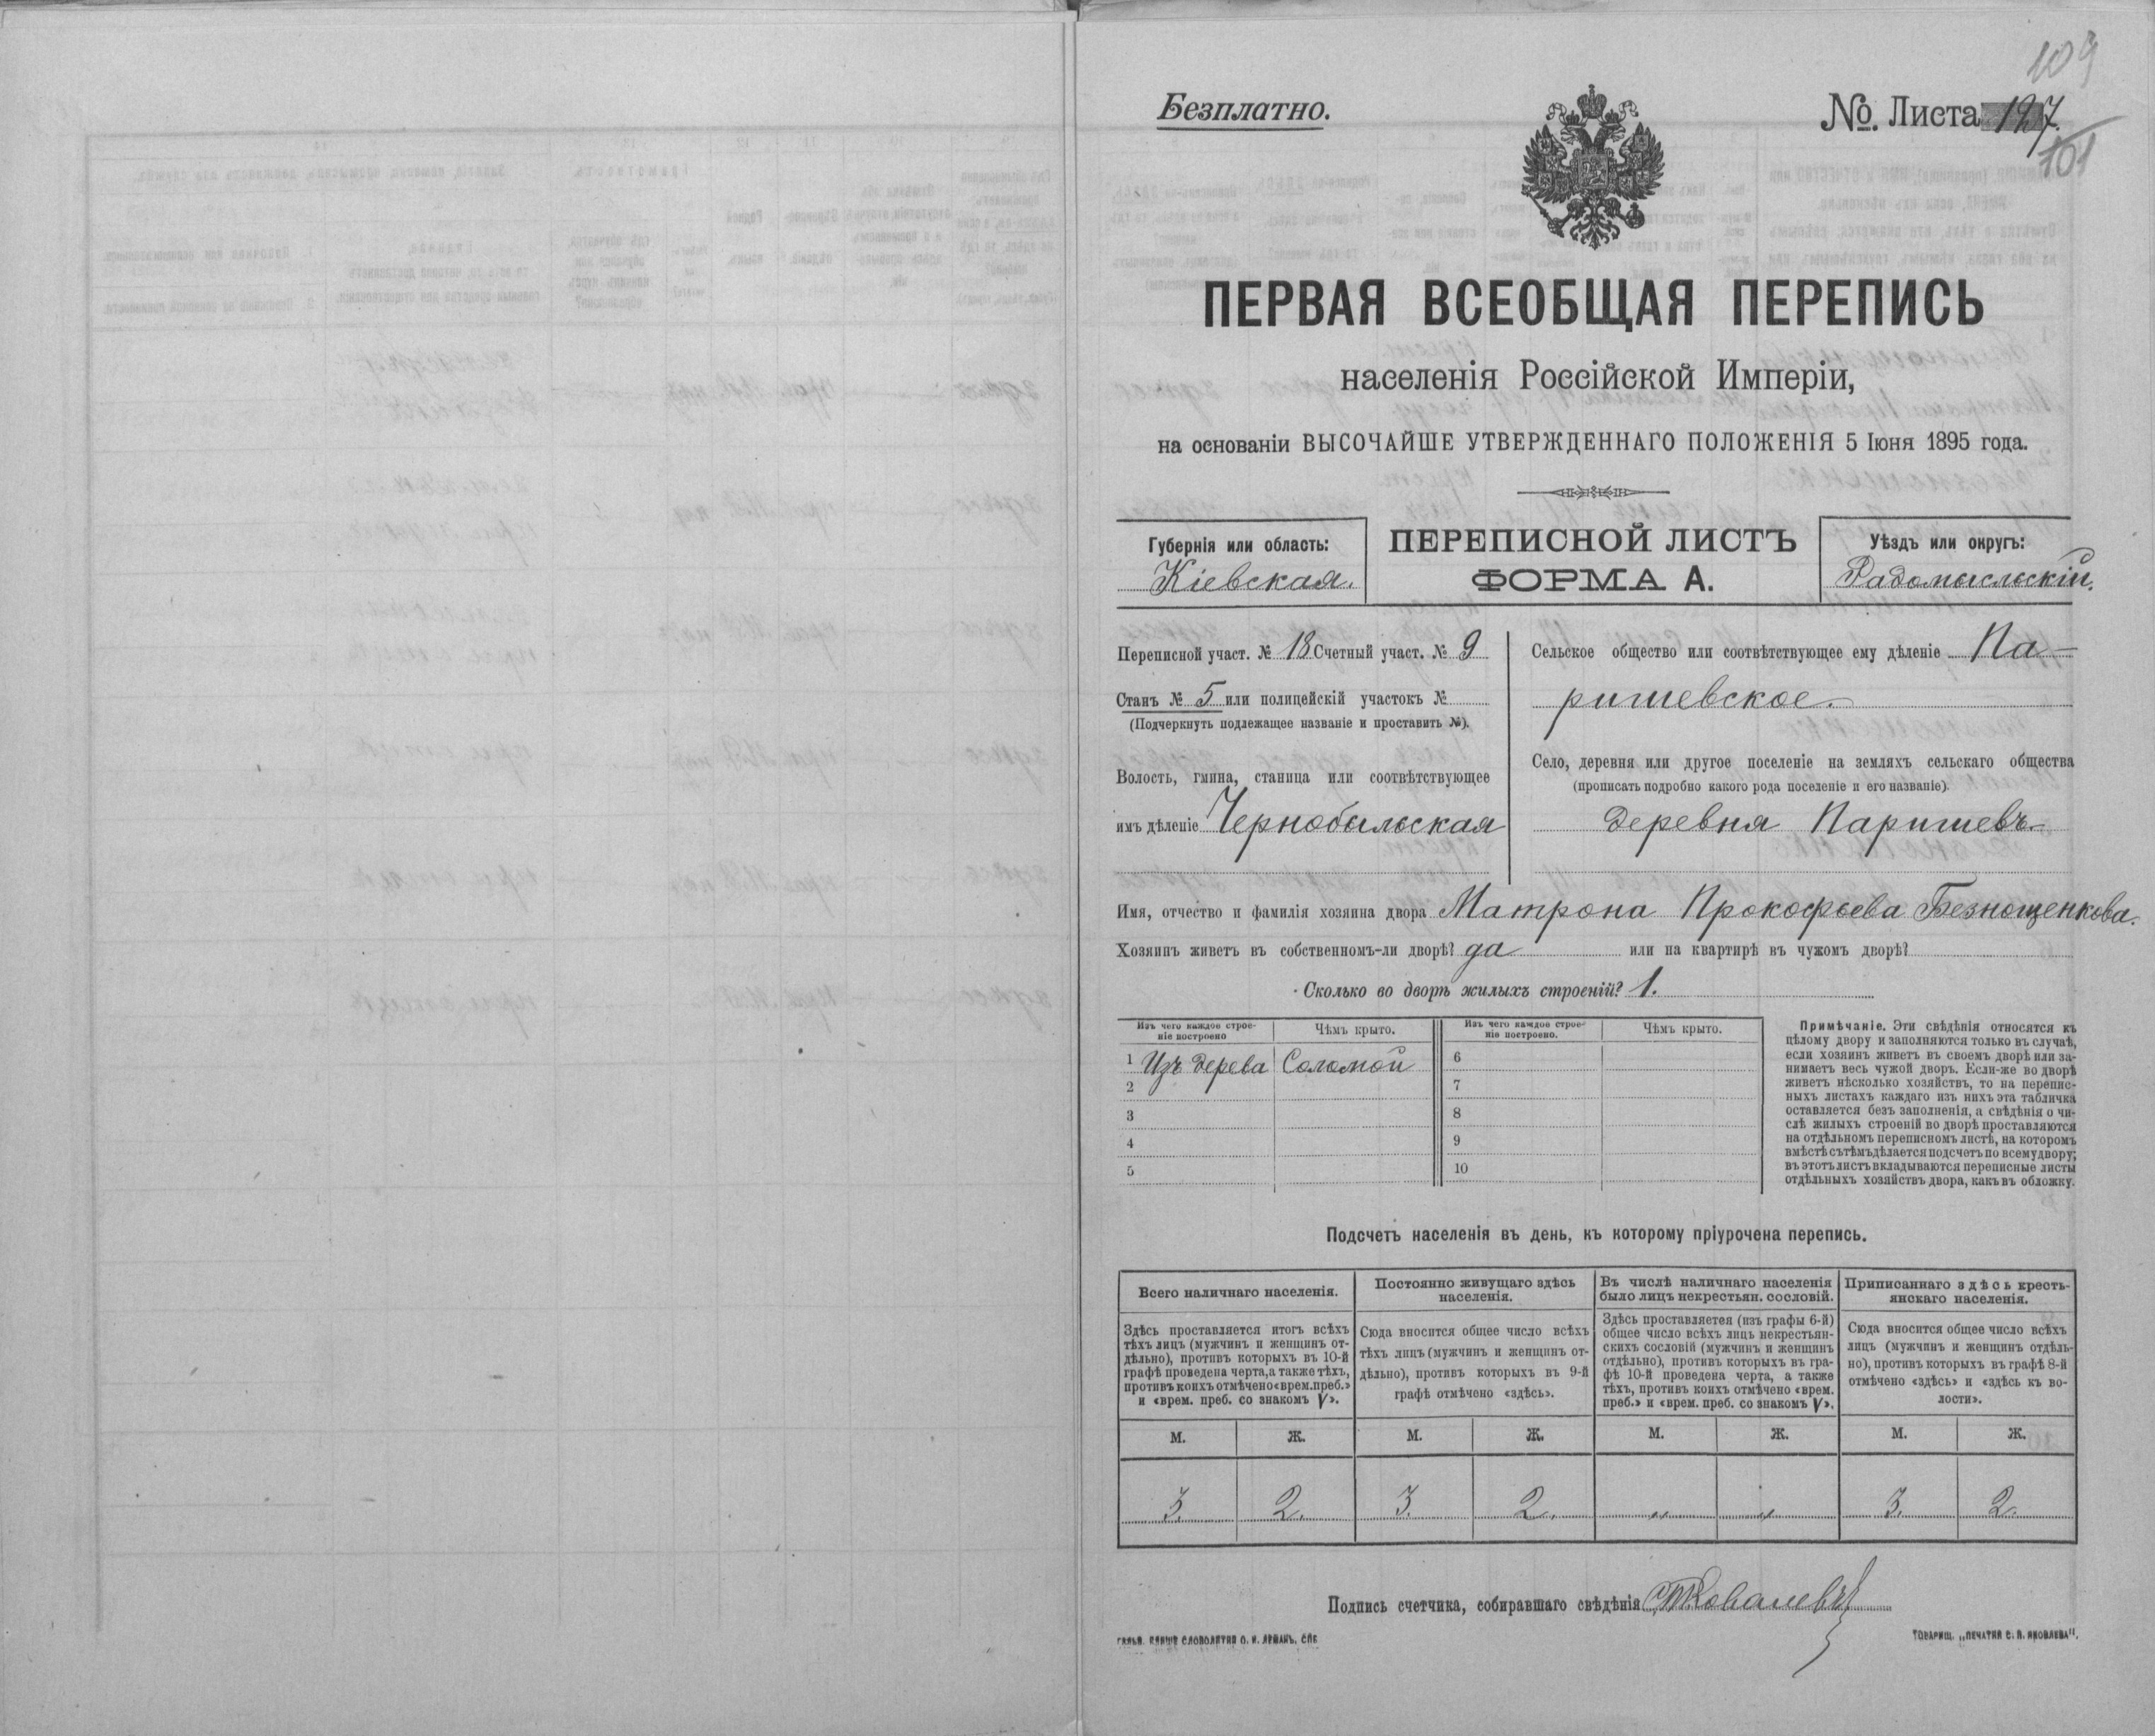 109
Безплатно.
№. Листа 127.
101
ПЕРВАЯ ВСЕОБЩАЯ ПЕРЕПИСЬ
населенія Россійской Имперіи,
на основаніи ВЫСОЧАЙШЕ УТВЕРЖДЕННАГО ПОЛОЖЕНІЯ 5 Іюня 1895 года.
Губернія или область:
Кіевская.
ПЕРЕПИСНОЙ ЛИСТЪ
ФОРМА А.
Уѣздъ или округъ:
Радомысльскій.
Переписной участ. № 18 Счетный участ. № 9
Станъ № 5 или полицейскій участокъ №
(Подчеркнуть подлежащее названіе и проставить №).
Волость, гмина, станица или соотвѣтствующее
имъ дѣленіе Чернобыльская
Сельское общество или соотвѣтствующее ему дѣленіе Па-
ришевское.
Село, деревня или другое поселеніе на земляхъ сельскаго общества
(прописать подробно какого рода поселеніе и его названіе).
деревня Паришевъ
Имя, отчество и фамилія хозяина двора Матрона Прокофьева Безнощенкова.
Хозяинъ живетъ въ собственномъ-ли дворѣ? да или на квартирѣ въ чужомъ дворѣ?
Сколько во дворѣ жилыхъ строеній? 1.
Изъ чего каждое строе-
ніе построено
Чѣмъ крыто.
Изъ чего каждое строе-
ніе построено.
Чѣмъ крыто.
1 Изъ дерева Соломой
2
3
4
5
6
7
8
9
10
Примѣчаніе. Эти свѣдѣнія относятся къ
цѣлому двору и заполняются только въ случаѣ,
если хозяинъ живетъ въ своемъ дворѣ или за-
нимаетъ весь чужой дворъ. Если-же во дворѣ
живетъ нѣсколько хозяйствъ, то на перепис-
ныхъ листахъ каждаго изъ нихъ эта табличка
оставляется безъ заполненія, а свѣдѣнія о чи-
слѣ жилыхъ строеній во дворѣ проставляются
на отдѣльномъ переписномъ листѣ, на которомъ
вмѣстѣ съ тѣмъ дѣлается подсчетъ по всему двору;
въ этотъ листъ вкладываются переписные листы
отдѣльныхъ хозяйствъ двора, какъ въ обложку.
Подсчетъ населенія въ день, къ которому пріурочена перепись.
Всего наличнаго населенія.
Здѣсь проставляется итогъ всѣхъ
тѣхъ лицъ (мужчинъ и женщинъ от-
дѣльно), противъ которыхъ въ 10-й
графѣ проведена черта, а также тѣхъ,
противъ коихъ отмѣчено «врем. преб.»
и «врем. преб. со знакомъ V».
Постоянно живущаго здѣсь
населенія.
Сюда вносится общее число всѣхъ
тѣхъ лицъ (мужчинъ и женщинъ от-
дѣльно), противъ которыхъ въ 9-й
графѣ отмѣчено «здѣсь».
Въ числѣ наличнаго населенія
было лицъ некрестьян. сословій.
Здѣсь проставляется (изъ графы 6-й)
общее число всѣхъ лицъ некрестьян-
скихъ сословій (мужчинъ и женщинъ
отдѣльно), противъ которыхъ въ гра-
фѣ 10-й проведена черта, а также
тѣхъ, противъ коихъ отмѣчено «врем.
преб.» и «врем. преб. со знакомъ V».
Приписаннаго здѣсь кресть-
янскаго населенія.
Сюда вносится общее число всѣхъ
лицъ (мужчинъ и женщинъ отдѣль-
но), противъ которыхъ въ графѣ 8-й
отмѣчено «здѣсь» и «здѣсь къ во-
лости».
М. Ж. М. Ж. М. Ж. М. Ж.
3. 2. 3. 2. „ „ 3. 2.
Подпись счетчика, собиравшаго свѣдѣнія Ковалевъ
ГАЛЬВ. КЛИШЕ СЛОВОЛИТНИ О. И. ЛЕМАНЪ, СПБ
ТОВАРИЩ. „ПЕЧАТНЯ С. П. ЯКОВЛЕВА".